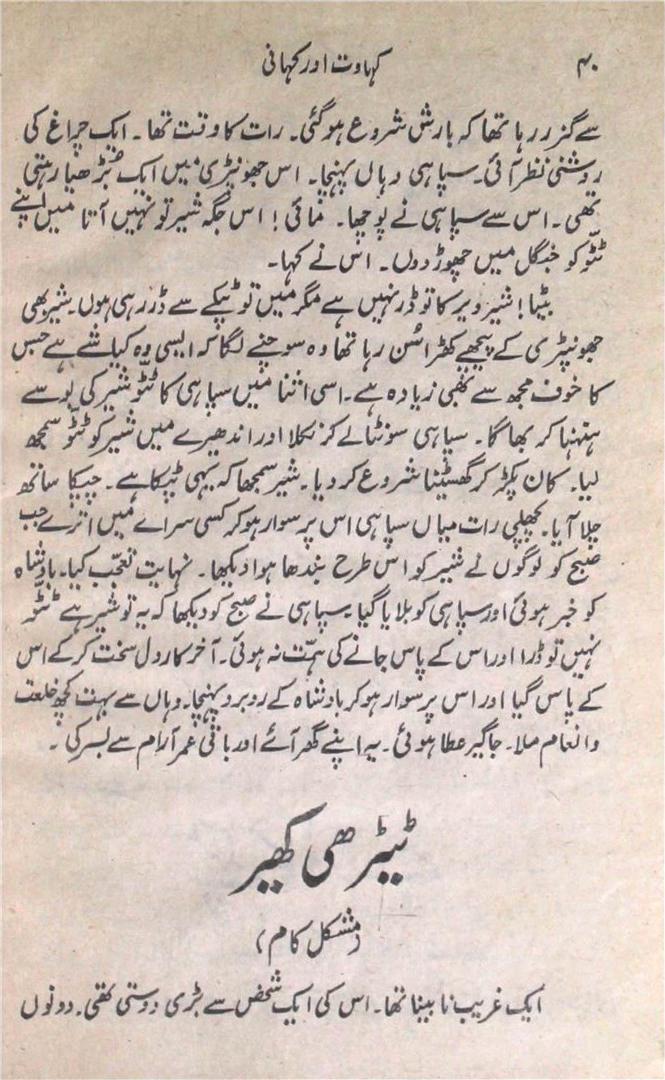 ۴۰
کہاوت اور کہانی
سے گزر رہا تھا کہ بارش شروع ہوگئی۔ رات کا وقت تھا۔ ایک چراغ کی
روشنی نظر آئی۔ سپاہی وہاں پہنچا۔ اس جھونپڑی میں ایک بُڑھیا رہتی
تھی۔ اس سے سپاہی نے پوچھا۔ مائی! اس جگہ شیر تو نہیں آتا میں اپنے
ٹٹّو کو جنگل میں چھوڑ دوں۔ اس نے کہا۔
بیٹا! شیر ویر کا تو ڈر نہیں ہے مگر میں تو ٹپکے سے ڈر رہی ہوں۔ شیر بھی
جھونپڑی کے پیچھے کھڑا سُن رہا تھا وہ سوچنے لگا کہ ایسی وہ کیا شے ہے جس
کا خوف مجھ سے بھی زیادہ ہے۔ اسی اثنا میں سپاہی کا ٹٹّو شیر کی بُو سے
ہنہنا کر بھاگا۔ سپاہی سونٹا لے کر نکلا اور اندھیرے میں شیر کو ٹٹّو سمجھ
لیا۔ کان پکڑ کر گھسیٹنا شروع کر دیا۔ شیر سمجھا کہ یہی ٹپکا ہے۔ چپکا ساتھ
چلا آیا۔ پچھلی رات میاں سپاہی اس پر سوار ہو کر کسی سرائے میں اترے جب
صبح کو لوگوں نے شیر کو اس طرح بندھا ہوا دیکھا۔ نہایت تعجّب کیا۔ بادشاہ
کو خبر ہوئی اور سپاہی کو بلایا گیا۔ سپاہی نے صبح کو دیکھا کہ یہ تو شیر ہے ٹٹّو
نہیں تو ڈرا اور اس کے پاس جانے کی ہمّت نہ ہوئی۔ آخر کار دل سخت کر کے اس
کے پاس گیا اور اس پر سوار ہو کر بادشاہ کے روبرو پہنچا۔ وہاں سے بہت کچھ خلعت
و انعام ملا۔ جاگیر عطا ہوئی۔ یہ اپنے گھر آئے اور باقی عمر آرام سے بسر کی۔
ٹیڑھی کھیر
(مشکل کام)
ایک غریب نابینا تھا۔ اس کی ایک شخص سے بڑی دوستی تھی۔ دونوں